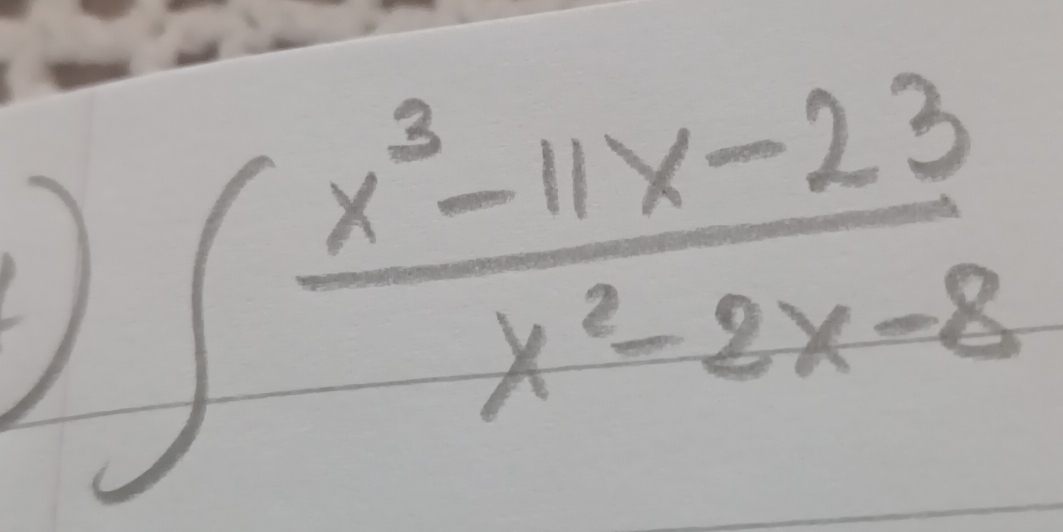 ) ∫ x³ - 11x - 23
x² - 2x - 8